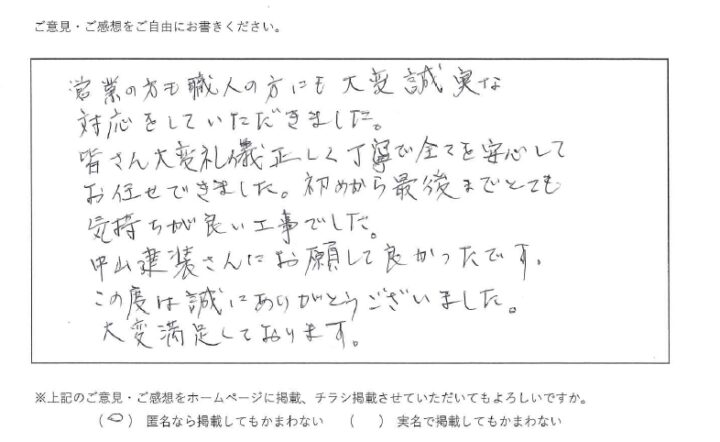 ご意見・ご感想をご自由にお書きください。
営業の方も職人の方にも大変誠実な
対応をしていただきました。
皆さん大変礼儀正しく丁寧で全てを安心して
お任せできました。初めから最後までとても
気持ちが良い工事でした。
中山建装さんにお願して良かったです。
この度は誠にありがとうございました。
大変満足しております。
※上記のご意見・ご感想をホームページに掲載、チラシ掲載させていただいてもよろしいですか。
(○) 匿名なら掲載してもかまわない ( ) 実名で掲載してもかまわない